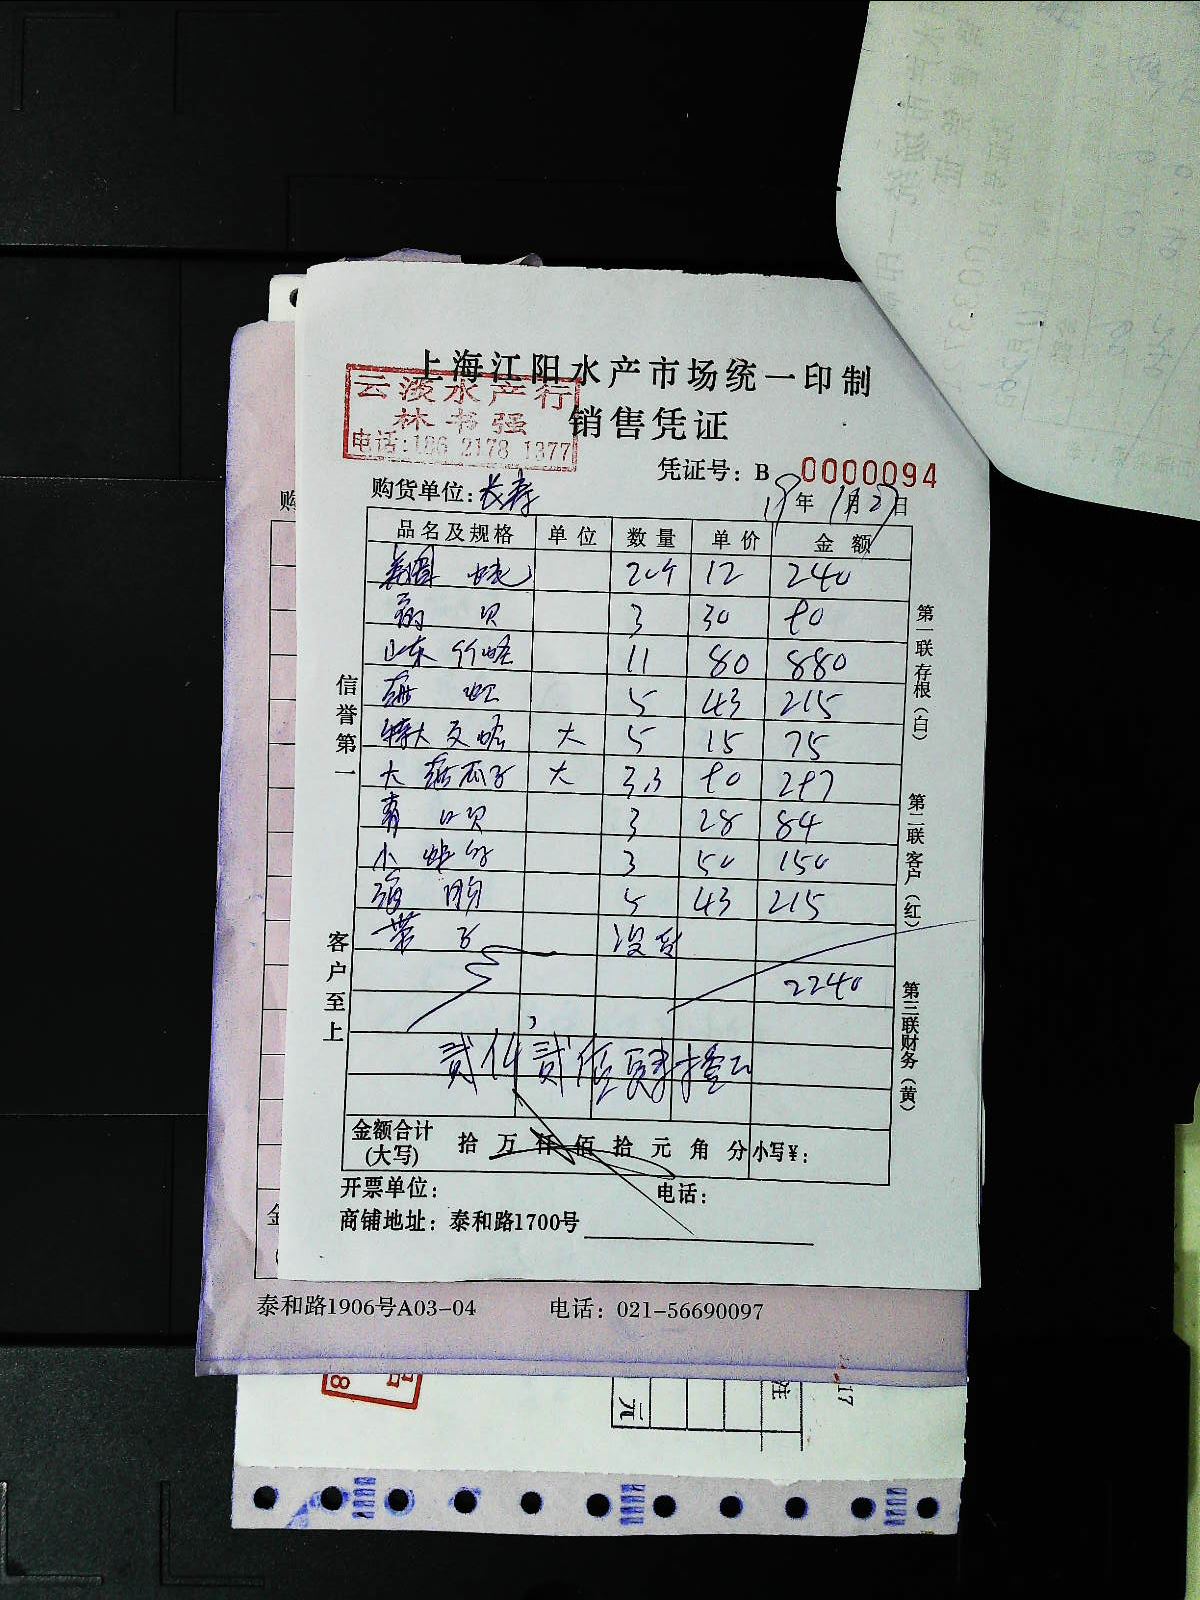 上海江阳水产市场统一印制
云淡水产行
林书强
电话:186 2178 1377
销售凭证
凭证号: B 0000094
购货单位: 长寿
19年 1月27日
品名及规格 单位 数量 单价 金额
20个 12 240
贝 3 30 90
山东 竹蛏 11 80 880
5 43 215
特大 文蛤 大 5 15 75
大 瓜子 大 3.3 90 297
青口贝 3 28 84
小 3 50 150
5 43 215
带子 没有
2240
贰仟贰佰肆拾元
金额合计(大写) 拾 万 仟 佰 拾 元 角 分 小写¥:
开票单位: 电话:
商铺地址: 泰和路1700号
信誉第一
客户至上
第一联存根(白)
第二联客户(红)
第三联财务(黄)
购
金
泰和路1906号A03-04 电话: 021-56690097
元
注